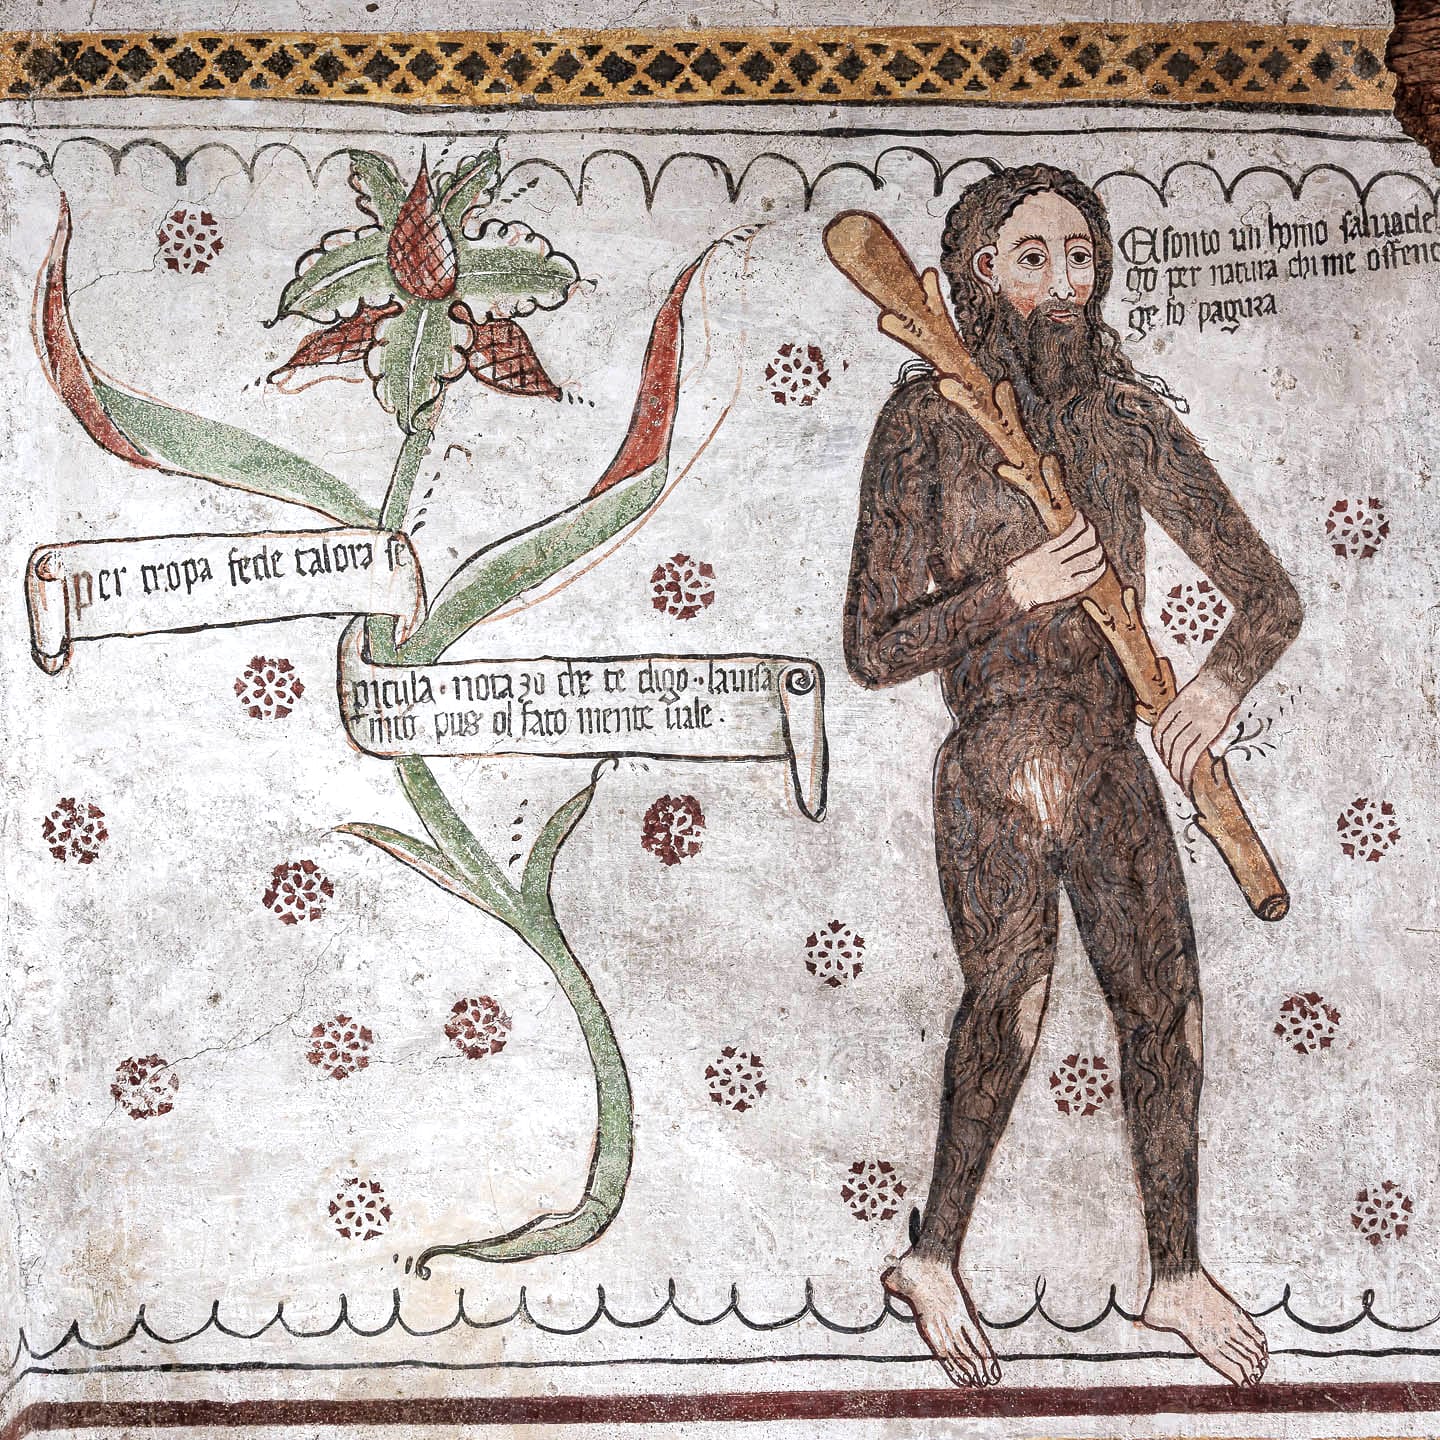 per tropa fede talora se
picula · nota zo che te digo · lauisa
mto pus ol fato mente uale ·
El sonto un homo saluadego
go per natura chi me offende
ge fo pagura